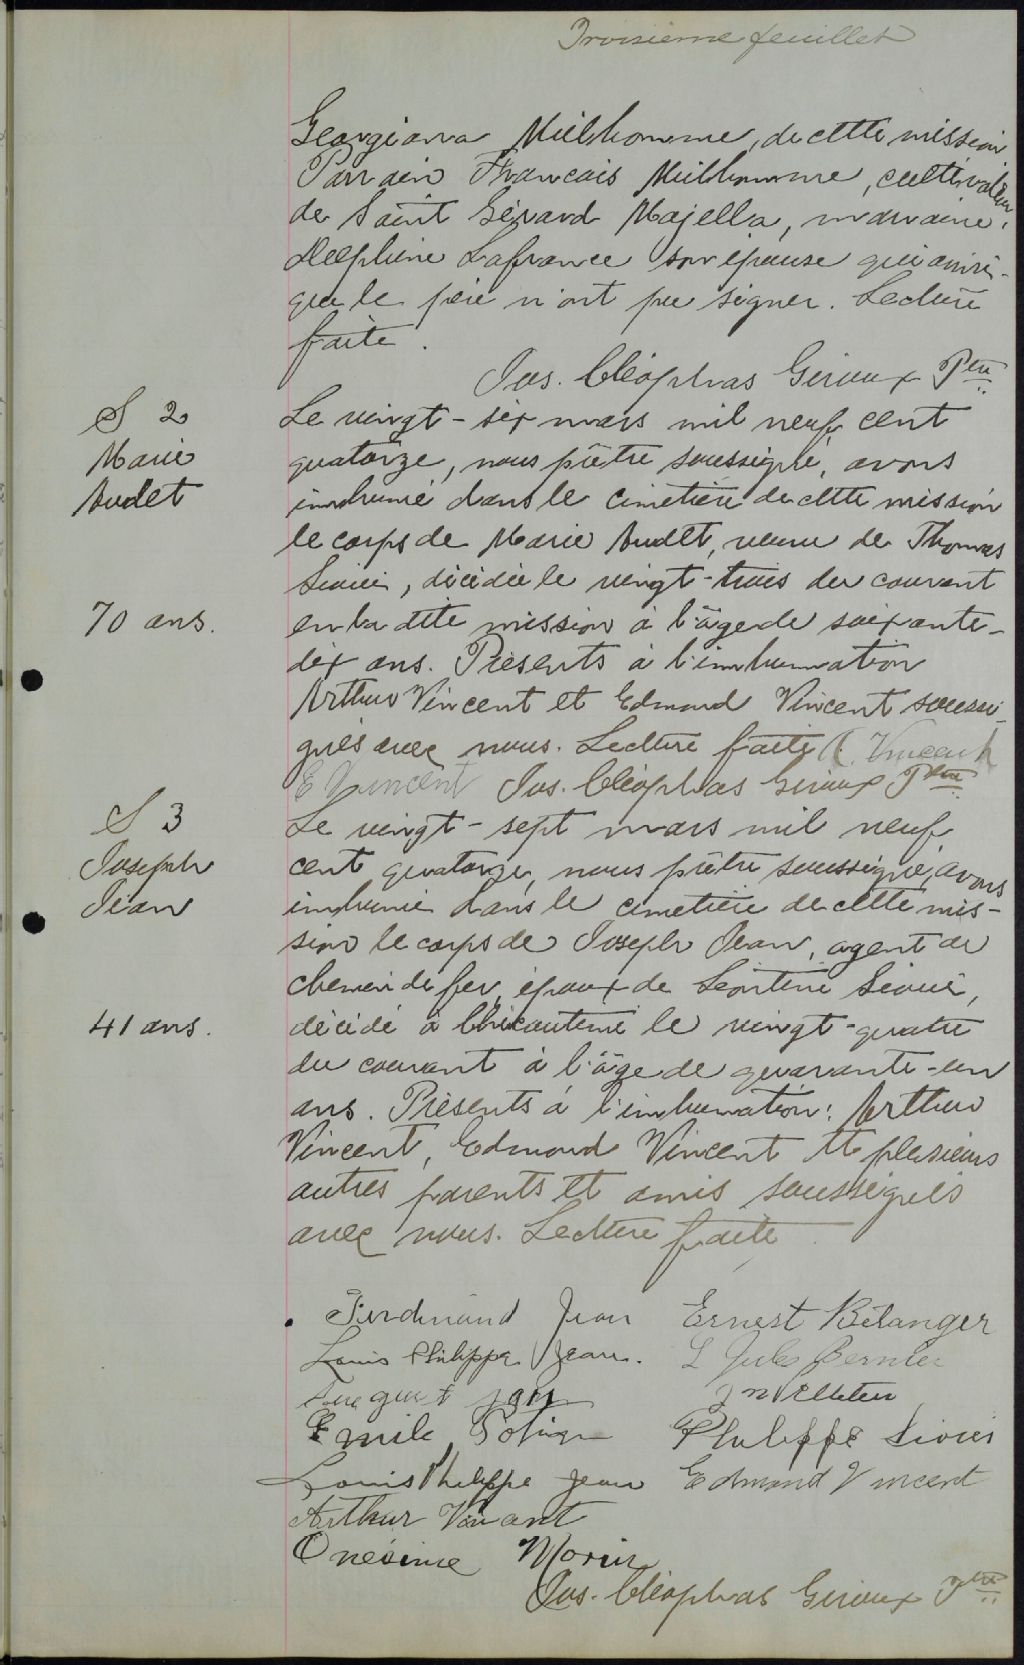 Troisieme feuillet
Georgiana Milhomme, de cette mission
Parrain Francois Milhomme, cultivateur
de Saint Gérard Majella, marraine,
Delphine Lafrance son épouse qui ainsi
que le père n'ont pu signer. Lecture
faite.
Jos. Cléophas Giroux Ptre
S 2
Marie
Audet
70 ans.
Le vingt-six mars mil neuf cent
quatorze, nous prêtre soussigné, avons
inhumé dans le cimetière de cette mission
le corps de Marie Audet, veuve de Thomas
Sivier, décédée le vingt-trois du courant
en la dite mission à l'âge de soixante-
dix ans. Présents à l'inhumation
Arthur Vincent et Edmond Vincent soussi-
gnés avec nous. Lecture faite A. Vincent
E Vincent Jos. Cléophas Giroux Ptre
S 3
Joseph
Jean
41 ans.
Le vingt-sept mars mil neuf
cent quatorze, nous prêtre soussigné, avons
inhumé dans le cimetière de cette mis-
sion le corps de Joseph Jean, agent de
chemin de fer, époux de Léontine
décédé à Chicoutimi le vingt-quatre
du courant à l'âge de quarante-un
ans. Présents à l'inhumation: Arthur
Vincent, Edmond Vincent et plusieurs
autres parents et amis soussignés
avec nous. Lecture faite
Ferdinand Jean Ernest Bélanger
Louis Philippe Jean. L Jules Bernier
J N Pelletier
Emile Potvin Philippe Sivier
Louis Philippe Jean Edmond Vincent
Arthur Vincent
Onésime Morin
Jos. Cléophas Giroux Ptre